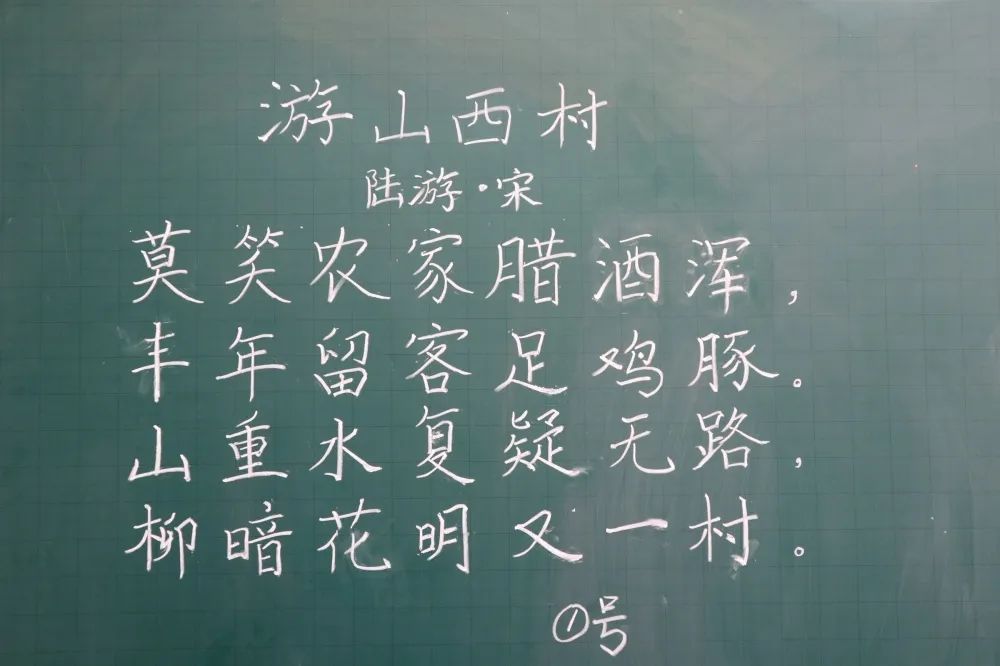 游山西村
陆游·宋
莫笑农家腊酒浑，
丰年留客足鸡豚。
山重水复疑无路，
柳暗花明又一村。
①号